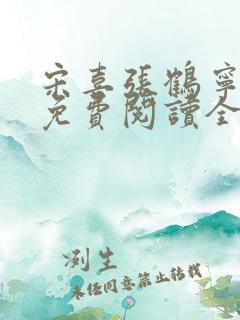 宋喜張鶴寧
免費閱讀全
冽生
未經同意禁止轉載